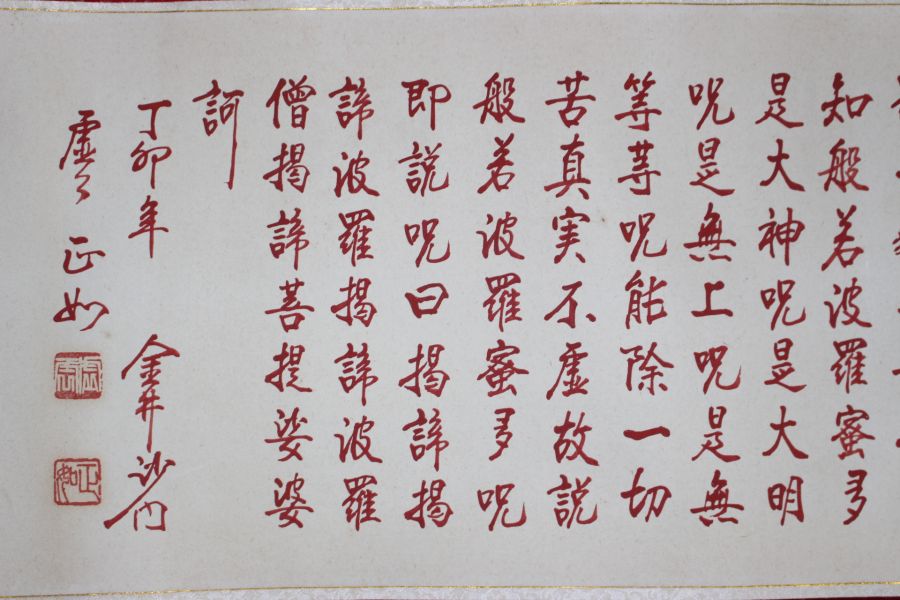 知般若波羅蜜多
是大神呪是大明
呪是無上呪是無
等等呪能除一切
苦真実不虚故説
般若波羅蜜多呪
即説呪曰揭諦揭
諦波羅揭諦波羅
僧揭諦菩提娑婆
訶
丁卯年 金井沙门
虚云 正如
正如